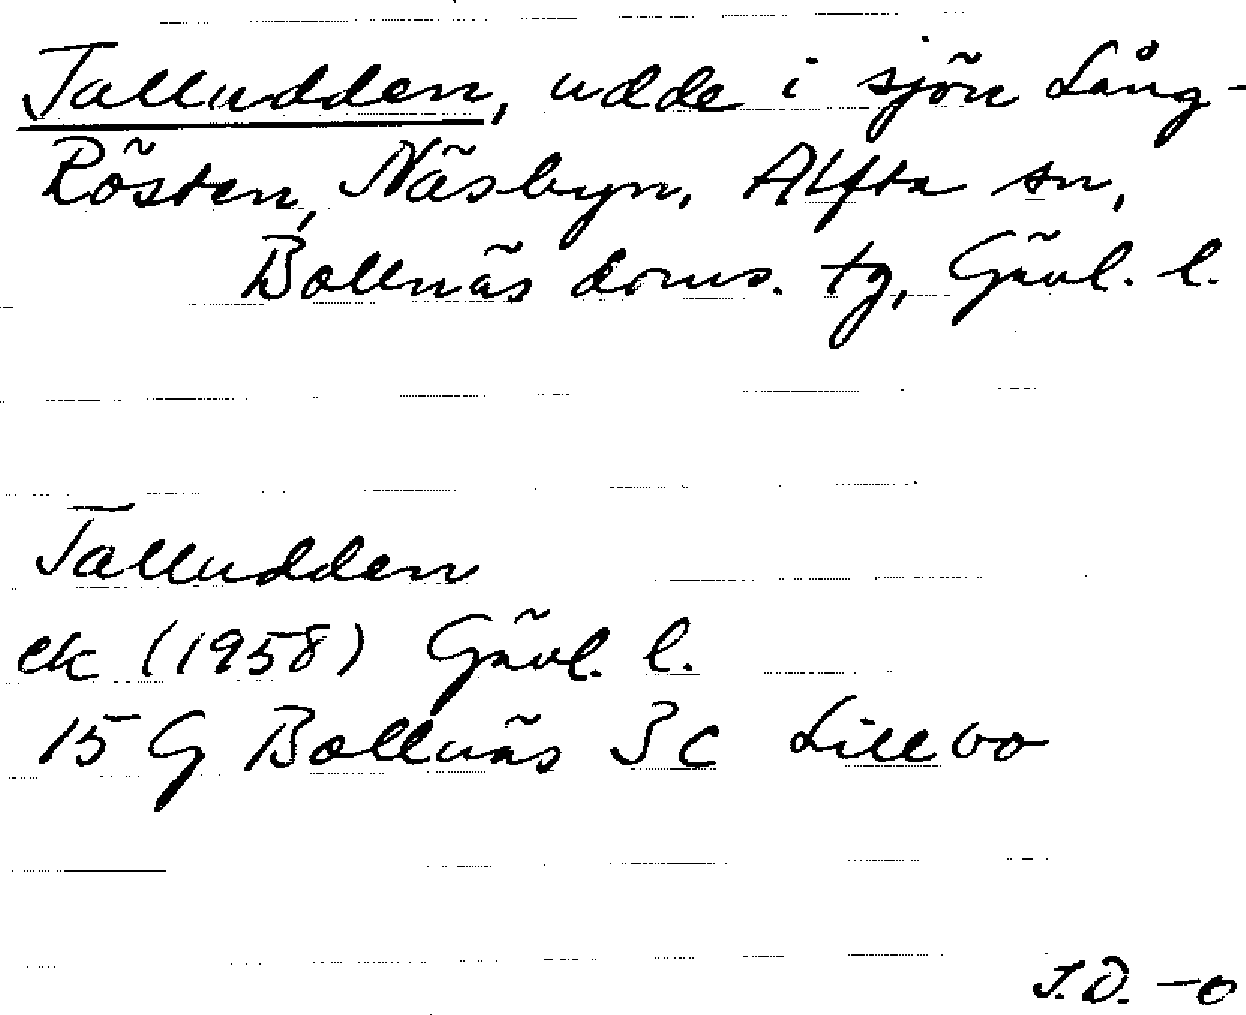 Talludden, udde i sjön Lång-
Rösten, Näsbyn, Alfta sn,
Bollnäs doms. tg, Gävl. l.
Talludden
ek (1958) Gävl. l.
15 G Bollnäs 3 c Lillbo
J.D. -0